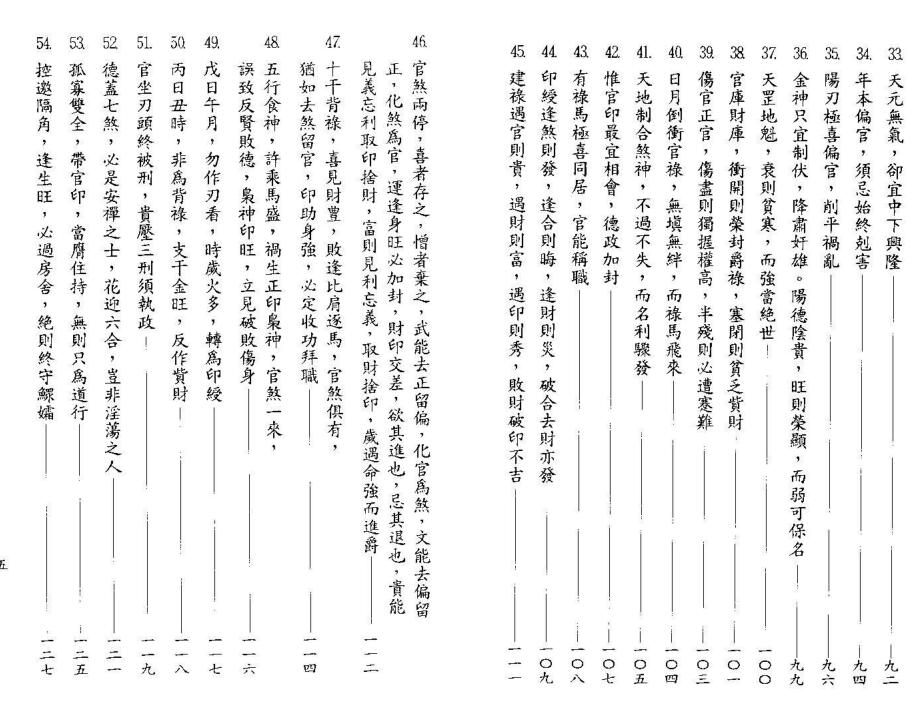 33. 天元無氣，卻宜中下興隆 九二
34. 年本偏官，須忌始終剋害 九四
35. 陽刃極喜偏官，削平禍亂 九六
36. 金神只宜制伏，降肅奸雄。陽德陰貴，旺則榮顯，而弱可保名 九九
37. 天罡地魁，衰則貧寒，而強當絕世！ 一〇〇
38. 官庫財庫，衝開則榮封爵祿，塞閉則貧乏貲財 一〇一
39. 傷官正官，傷盡則獨握權高，半殘則必遭蹇難 一〇三
40. 日月倒衝官祿，無填無絆，而祿馬飛來 一〇四
41. 天地制合煞神，不過不失，而名利驟發 一〇五
42. 惟官印最宜相會，德政加封 一〇七
43. 有祿馬極喜同居，官能稱職 一〇八
44. 印綬逢煞則發，逢合則晦，逢財則災，破合去財亦發 一〇九
45. 建祿遇官則貴，遇財則富，遇印則秀，敗財破印不吉 一一一
46. 官煞兩停，喜者存之，憎者棄之，武能去正留偏，化官為煞，文能去偏留
正，化煞為官，運逢身旺必加封，財印交差，欲其進也，忌其退也，貴能
見義忘利取印捨財，富則見利忘義，取財捨印，歲遇命強而進爵 一一二
47. 十干背祿，喜見財豐，敗逢比肩逐馬，官煞俱有，
猶如去煞留官，印助身強，必定收功拜職 一一四
48. 五行食神，許乘馬盛，禍生正印梟神，官煞一來，
誤致反賢敗德，梟神印旺，立見破敗傷身 一一六
49. 戊日午月，勿作刃看，時歲火多，轉為印綬 一一七
50. 丙日丑時，非為背祿，支干金旺，反作貲財 一一八
51. 官坐刃頭終被刑，貴壓三刑須執政 一一九
52. 德蓋七煞，必是安禪之士，花迎六合，豈非淫蕩之人 一二一
53. 孤寡雙全，帶官印，當膺住持，無則只為道行 一二五
54. 控邀隔角，逢生旺，必過房舍，絕則終守鰥孀 一二七
五